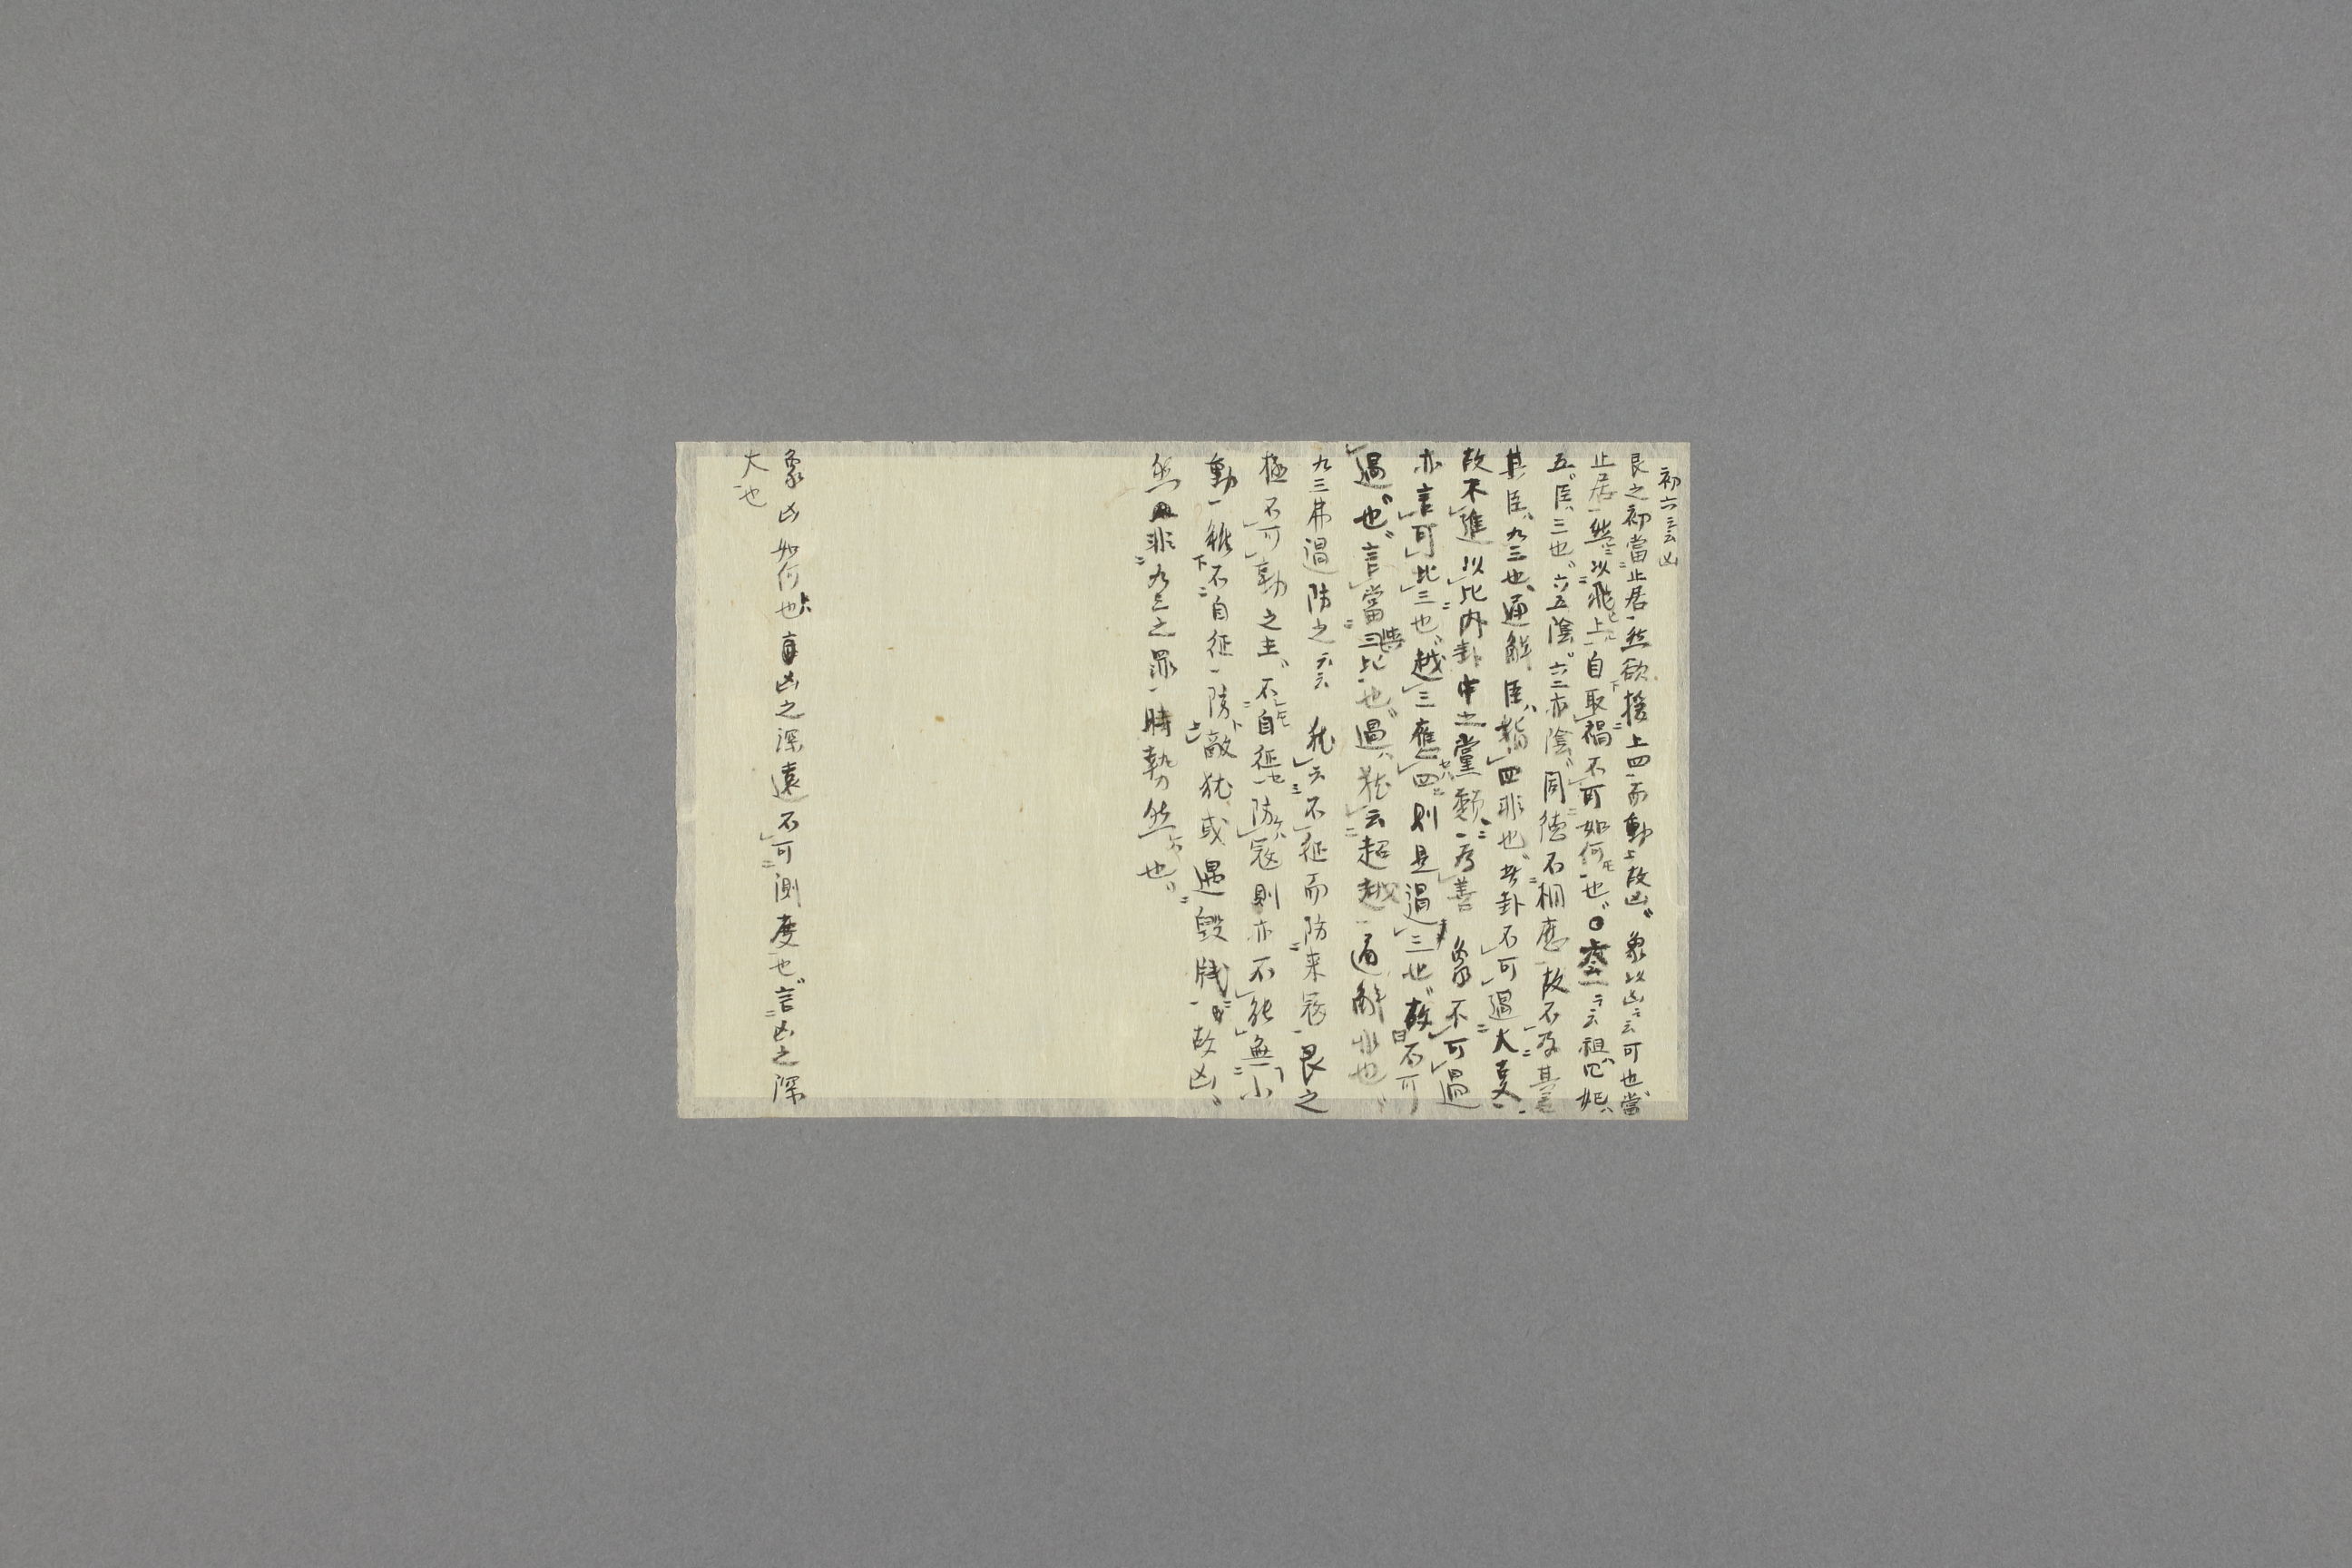 初六云云凶
艮之初當止居然欲援上四而動上故凶象以凶云云可也當
止居然以飛上自取禍不可如何也○六二云云祖四妣
五臣三也六五陰六二亦陰同徳不相應故不及其君
其臣九三也通解臣指四非也此卦不可過大
故不進以比内卦中之黨類為善 象不可過
亦言可比三也越三應四則是過三也故曰不可
過也言當與三比也過猶云超越通解非也
九三弗過防之云云 猶云不征而防来寇艮之
極不可動之主不自征防寇則亦不能無小
動雖不自征防敵猶或遇毀戕故凶
然非九三之罪時勢然也
象凶如何也言凶之深遠不可測度也言凶之深
大也